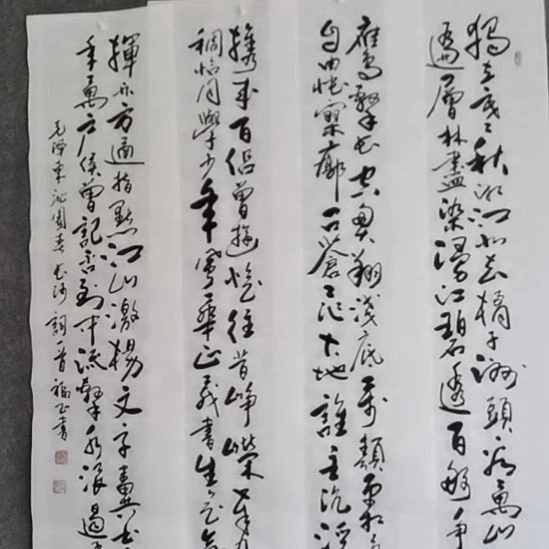 獨立寒秋湘江北去橘子洲頭看萬山
遍層林盡染漫江碧透百舸爭
鷹擊長空魚翔淺底萬類霜天
自由悵寥廓問蒼茫大地誰主沉浮
攜來百侶曾遊憶往昔崢嶸歲月
稠恰同學少年風華正茂書生意氣
揮斥方遒指點江山激揚文字糞土
年萬户侯曾記否到中流擊水浪遏
毛澤東沁園春長沙詞一首 書